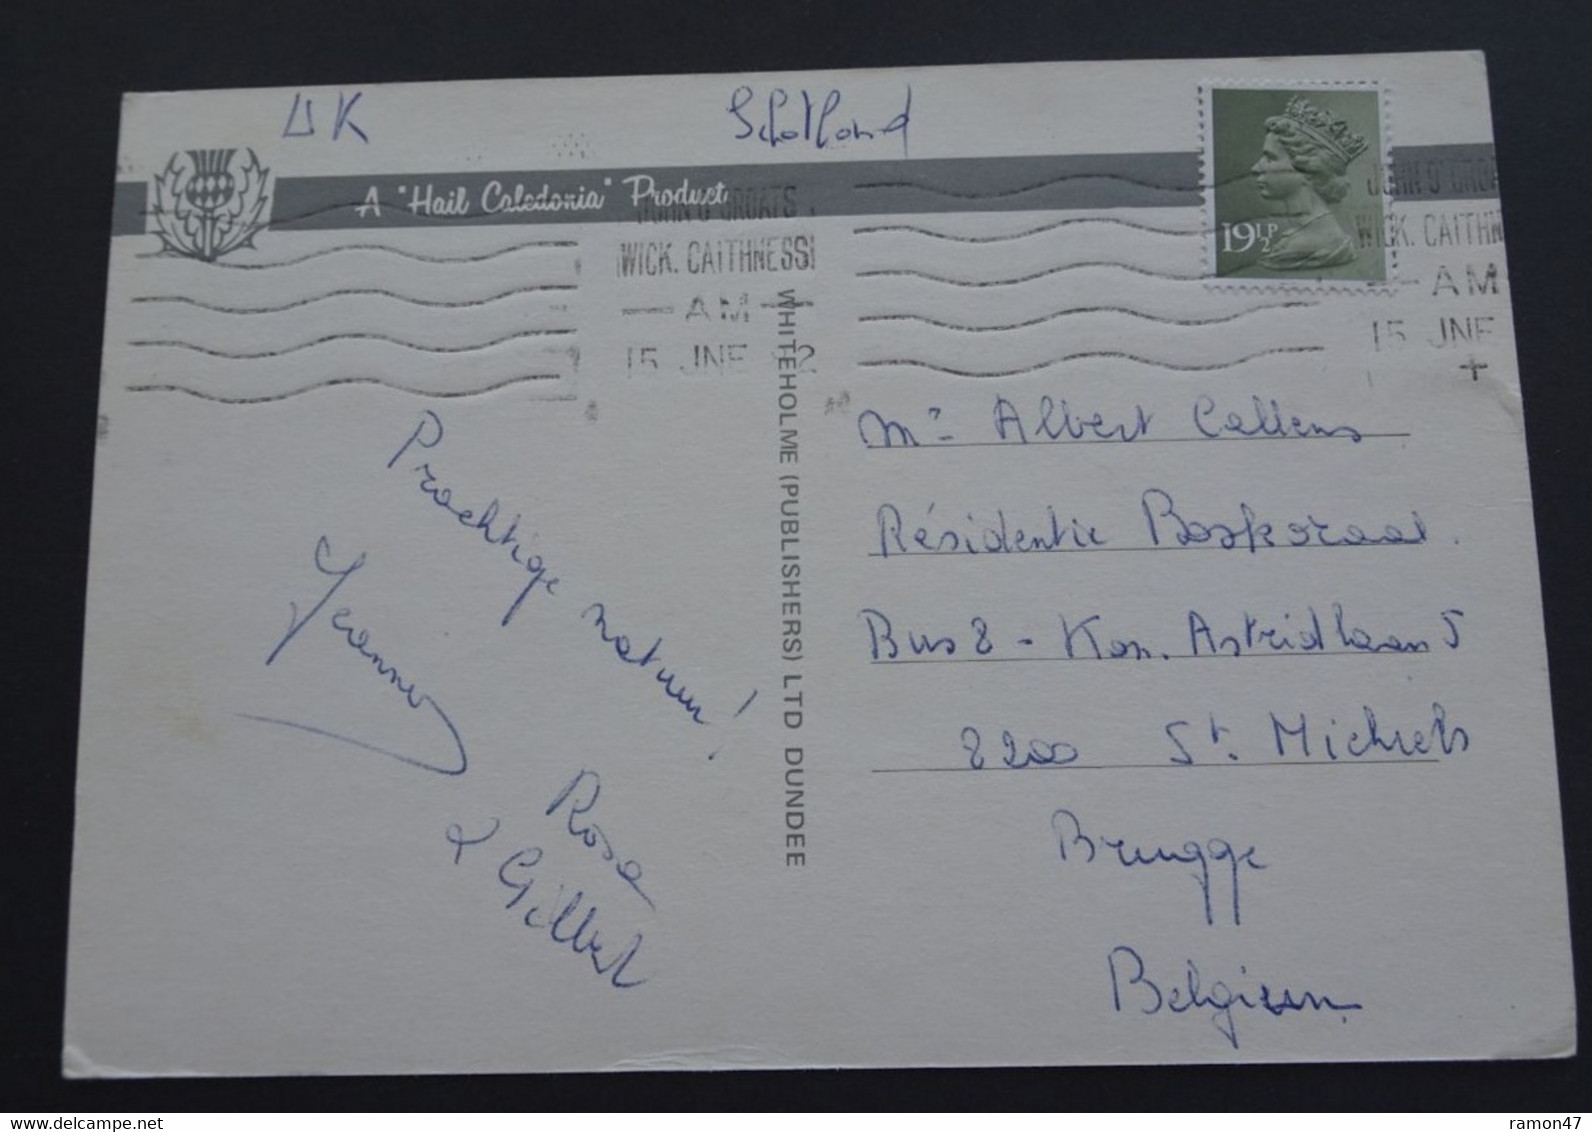 UK
Schotland
A "Hail Caledonia" Product
19½P
JOHN O'GROATS
WICK. CAITHNESS
AM
15 JNE
JOHN O'GROA
WICK. CAITHN
AM
15 JNE
WHITEHOLME (PUBLISHERS) LTD DUNDEE
Prachtige natuur!
Jeanner
Rosa
& Gilbert
Mr Albert Callens
Résidentie Boskoraal.
Bus 8 - Kon. Astridlaan 5
8200 St. Michiels
Brugge
Belgium
ramon47